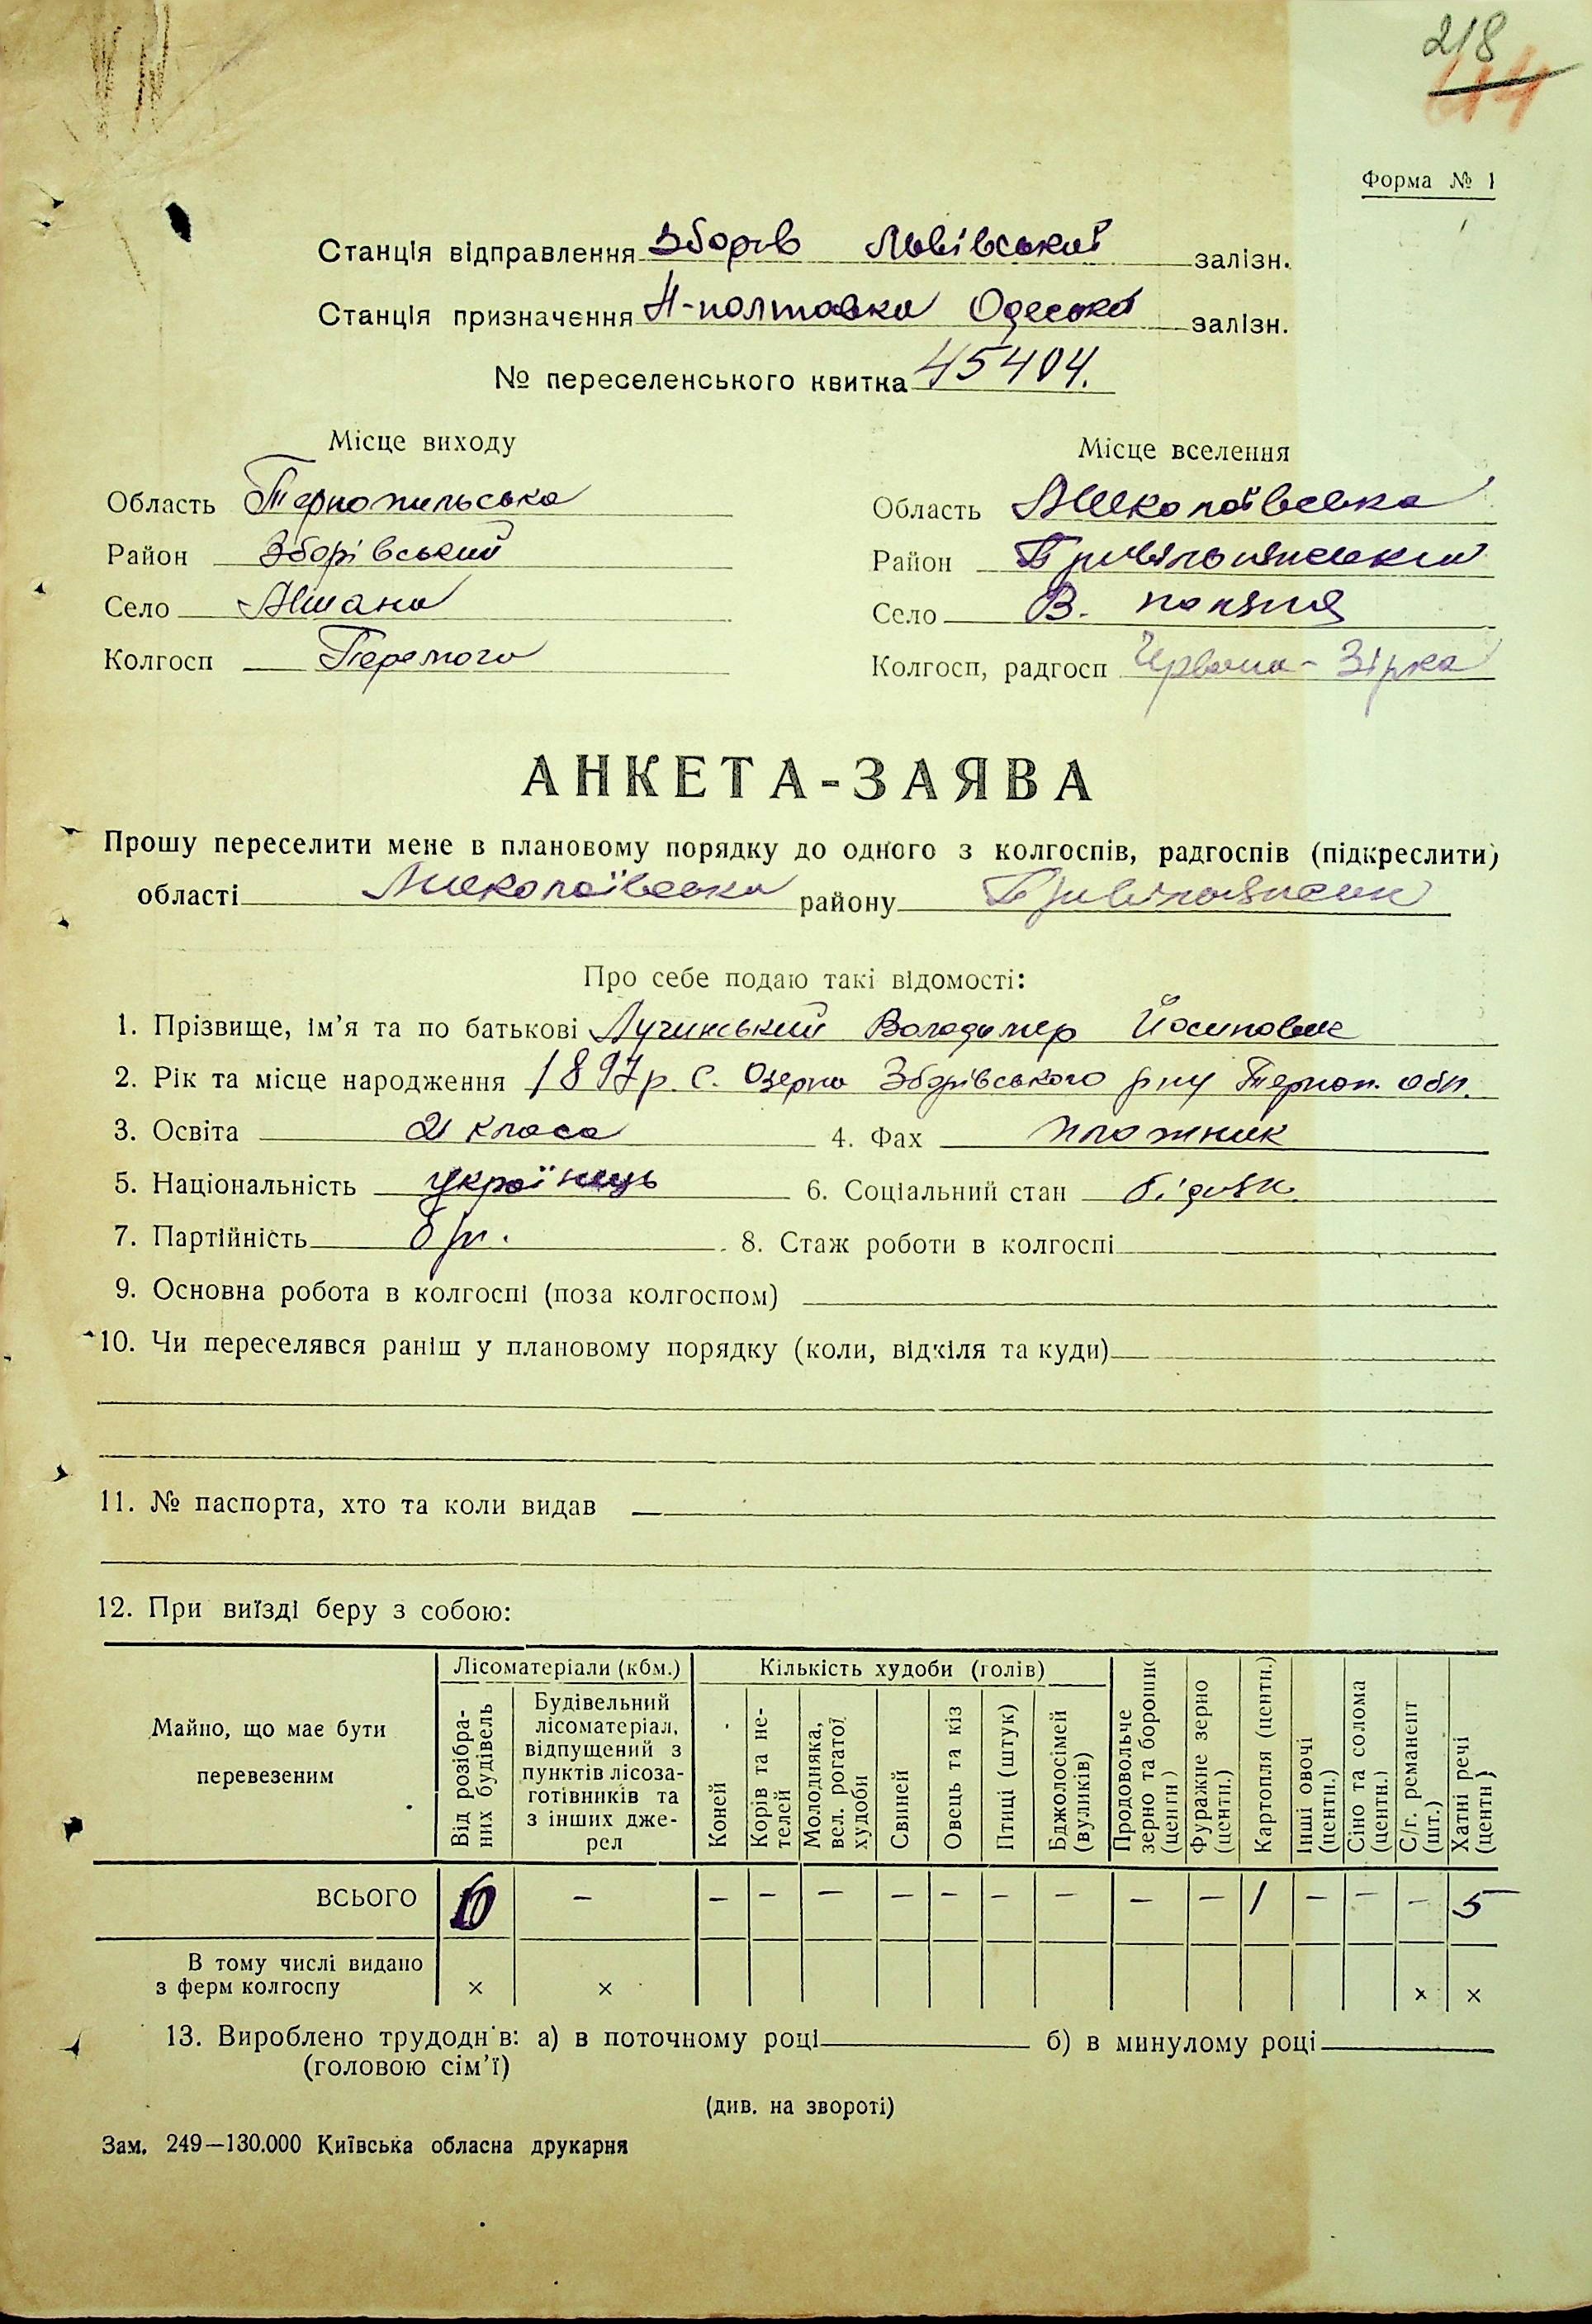 218
614
Форма № 1
Станція відправлення Зборів Львівської залізн.
Станція призначення Н-полтавка Одеської залізн.
№ переселенського квитка 45404.
Місце виходу
Місце вселення
Область Тернопільська
Область Миколаївська
Район Зборівський
Район Привільнянський
Село
Село В. поляна
Колгосп Перемога
Колгосп, радгосп Червона-Зірка
АНКЕТА-ЗАЯВА
Прошу переселити мене в плановому порядку до одного з колгоспів, радгоспів (підкреслити)
області Миколаївська району Привільнянськ
Про себе подаю такі відомості:
1. Прізвище, ім’я та по батькові Лучинський Володимер Йосипович
2. Рік та місце народження 1897р. С. Озерна Зборівського р-ну Терноп. обл.
3. Освіта 2 класа 4. Фах пложник
5. Національність українець 6. Соціальний стан бідняк
7. Партійність б/п. 8. Стаж роботи в колгоспі
9. Основна робота в колгоспі (поза колгоспом)
10. Чи переселявся раніш у плановому порядку (коли, відкіля та куди)
11. № паспорта, хто та коли видав
12. При виїзді беру з собою:
Майно, що має бути перевезеним
Лісоматеріали (кбм.)
Кількість худоби (голів)
Від розібраних будівель
Будівельний лісоматеріал, відпущений з пунктів лісозаготівників та з інших джерел
Коней
Корів та нетелей
Молодняка, вел. рогатої худоби
Свиней
Овець та кіз
Птиці (штук)
Бджолосімей (вуликів)
Продовольче зерно та борошно (центн)
Фуражне зерно (центн.)
Картопля (центн.)
Інші овочі (центн.)
Сіно та солома (центн.)
С/г. реманент (шт.)
Хатні речі (центн)
ВСЬОГО 10 – – – – – – – – – – 1 – – – 5
В тому числі видано з ферм колгоспу × × × ×
13. Вироблено трудоднів: а) в поточному році б) в минулому році
(головою сім’ї)
(див. на звороті)
Зам. 249—130.000 Київська обласна друкарня